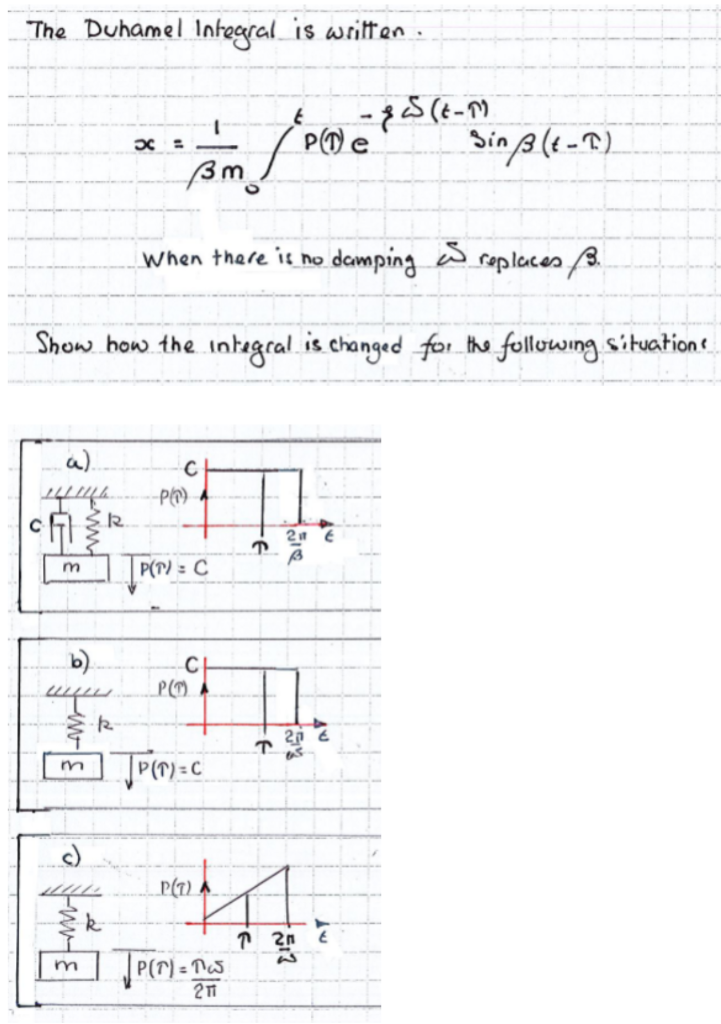 The Duhamel Integral is written.
x = 1/(βm) ∫₀ᵗ P(τ) e^(-ξω(t-τ)) Sin β(t-τ)
When there is no damping ω replaces β.
Show how the integral is changed for the following situations
a)
C
P(τ)
c
k
τ
2π/β
t
m
P(τ) = C
b)
C
P(τ)
k
τ
2π/ω
t
m
P(τ) = C
c)
P(τ)
k
τ
2π/ω
t
m
P(τ) = τω/2π